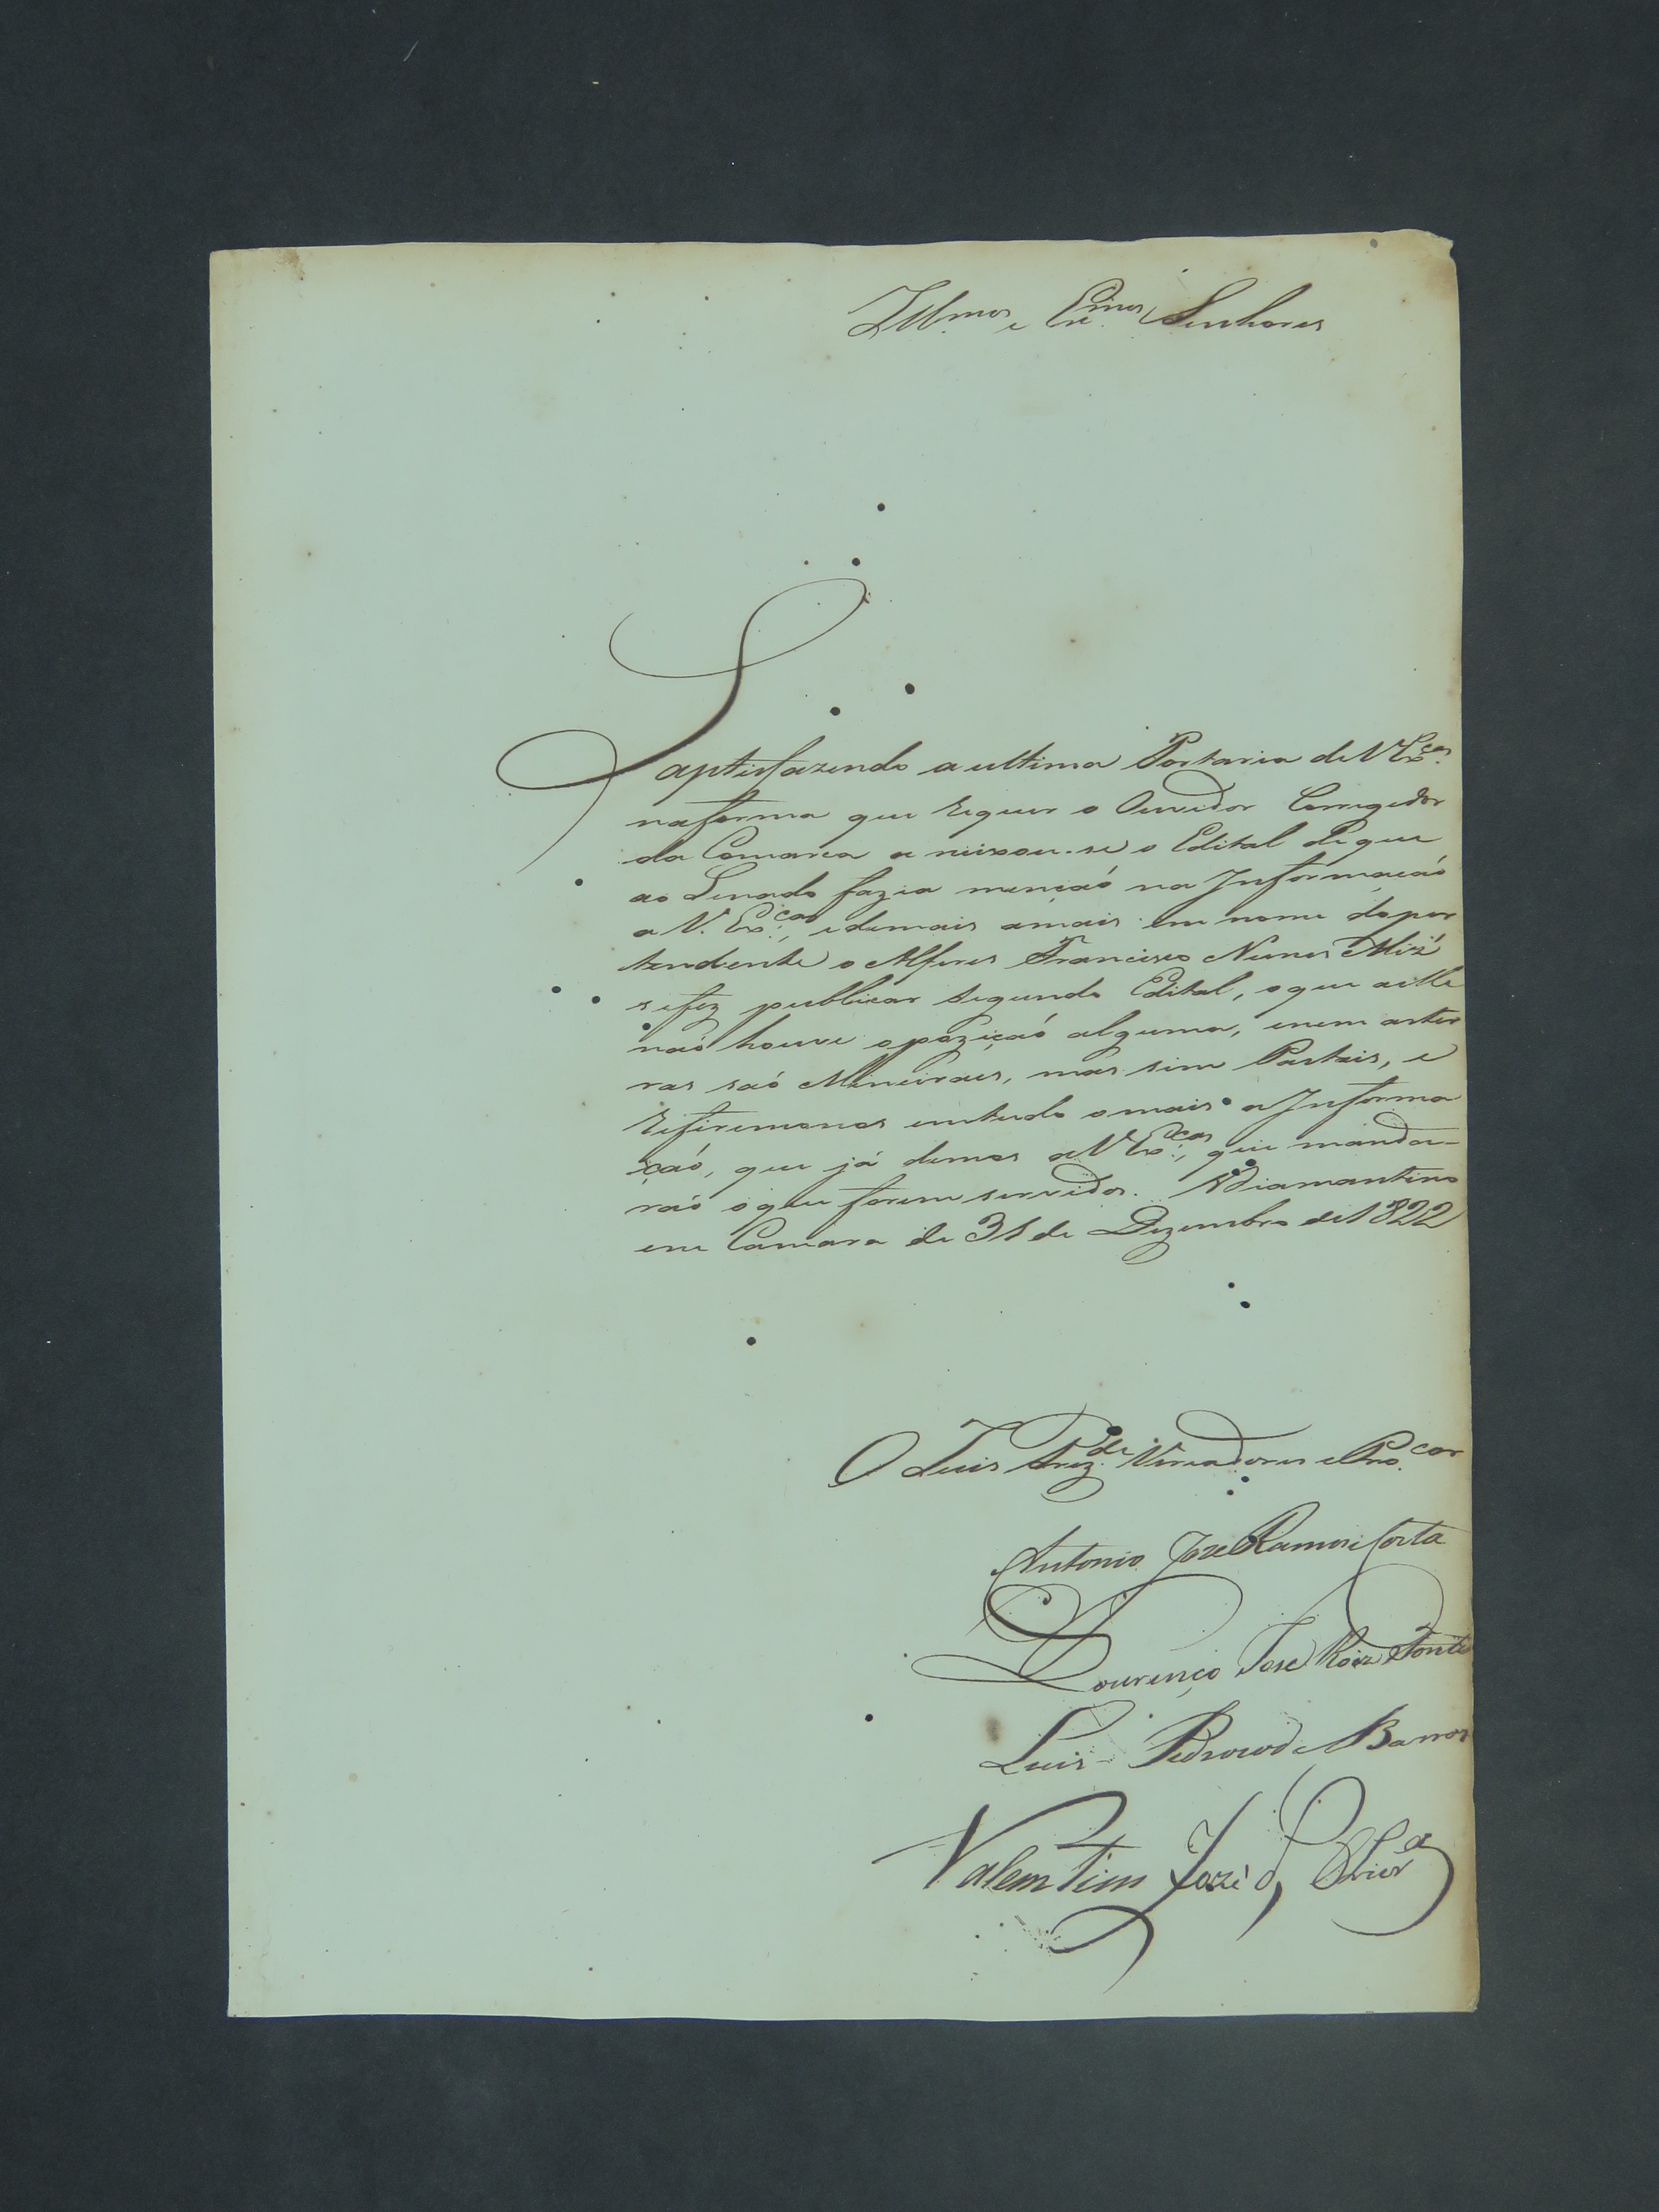 Illmos e Exmos Senhores
Saptisfazendo a ultima Portaria de V Excas
na forma que requer o Ouvidor Corregedor
da Comarca aneixou-se o Edital de que
ao Senado fazia mençaó na Informaçaó
a V. Excas, e demais amais em nome do per
tendente o Alferes Francisco Nunes
se fez publicar segundo Edital, o que a elle
naó houve opoziçaó alguma, enem as ter
ras saó Mineiraes, mas sim Pastais, e
referemonos em tudo o mais a Informa
çaó, que já demos a V Excas, que manda-
raó o que forem servidos. Diamantino
em Camara de 31 de Dezembro de 1822
O Juis Prezde Vereadores e Procor
Antonio Joze Ramos e Costa
Lourenço Jose Roiz Ponte
Luis Pedrozo de Barros
Valentim Jozè d Olivra